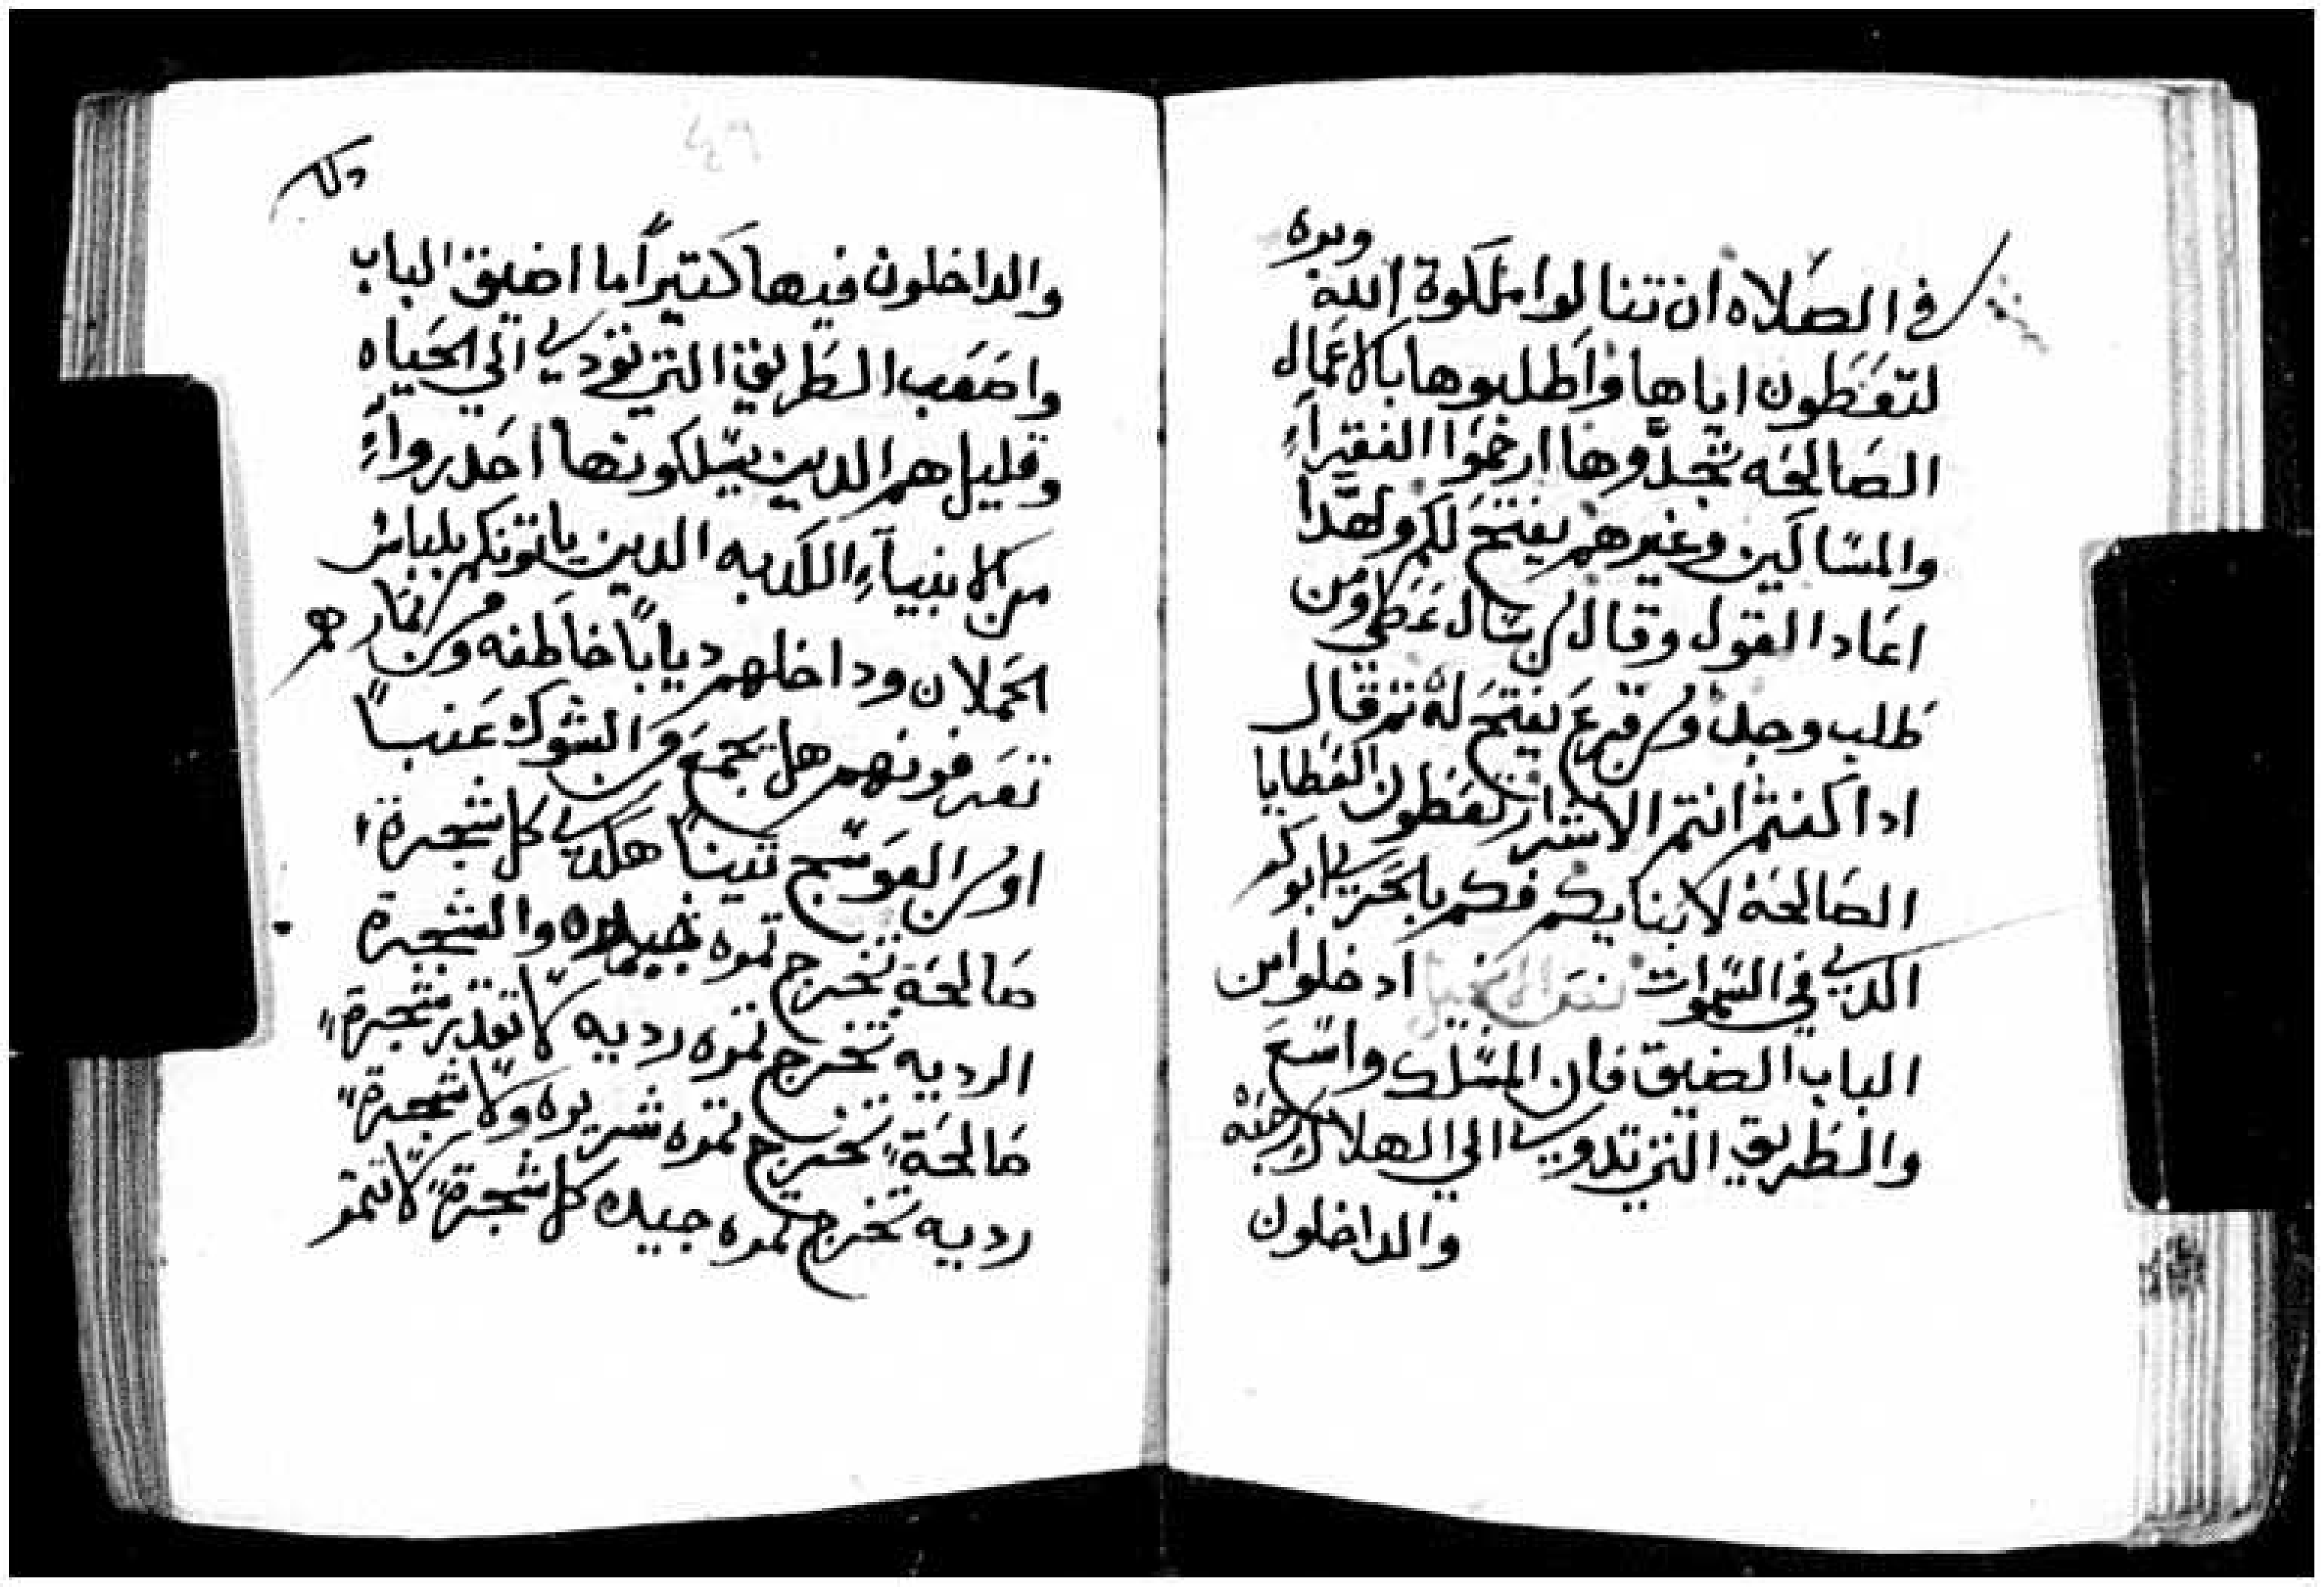 في الصلاه ان تنالوا ملكوة الله وبره
لتعطون اياها واطلبوها بالاعمال
الصالحه تجدوها ارحموا الفقراء
والمساكين وغيرهم يفتح لكم ولهدا
اعاد القول وقال من يسال يعطي ومن
طلب وجد ومن قرع يفتح له تم قال
ادا كنتم انتم الاشرار تعطون العطايا
الصالحة لابنايكم فكم بالحري ابوكم
الدي في السموات ادخلوا من
الباب الضيق فان المسلك واسع
والطريق التي تدوي الي الهلاك رحبه
والداخلون
والداخلون فيها كتيراً ما اضيق الباب
واصعب الطريق التي تودي الي الحياه
وقليل هم الدين يسلكونها احدروا
من الانبياء الكدبه الدين ياتونكم بلباس
الحملان وداخلهم دياباً خاطفه ومن تمارهم
تعرفونهم هل يجمع من الشوك عنباً
او من العوسج تيناً هكدي كل شجرة
صالحة تخرج تمره جيده والشجرة
الرديه تخرج تمره رديه لا تقدر شجرة
صالحة تخرج تمره شريره ولا شجرة
رديه تخرج تمره جيده كل شجرة لا تتمر